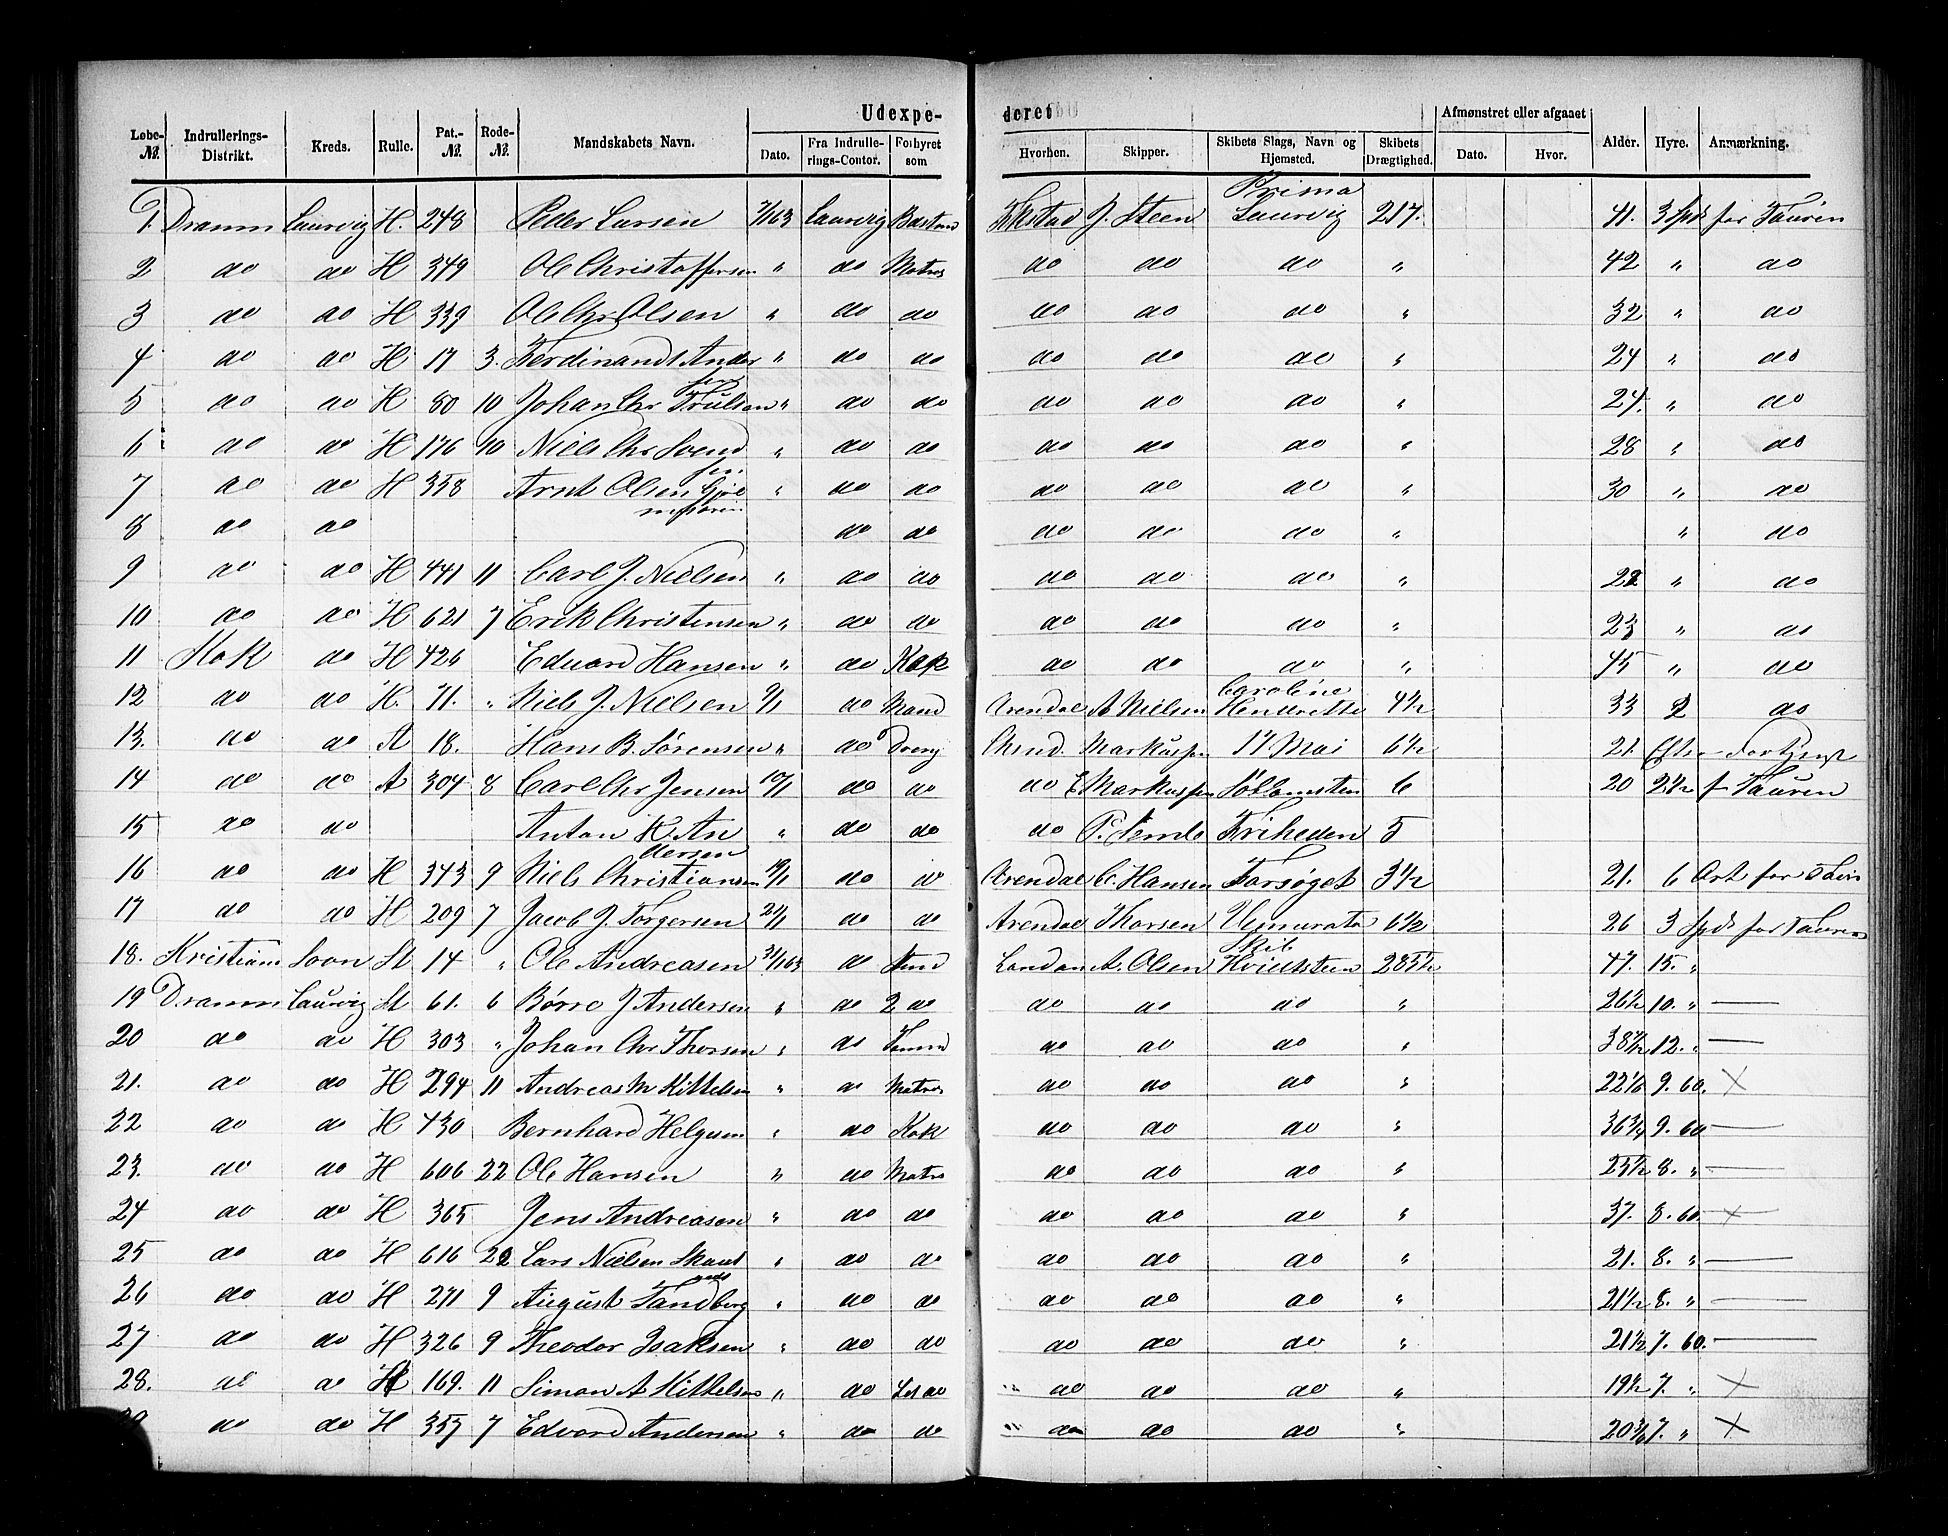 Udexpederet
Løbe-№. Indrullerings-Distrikt. Kreds. Rulle. Pat.-№. Rode-№. Mandskabets Navn. Dato. Fra Indrullerings-Contor. Forhyret som Hvorhen. Skipper. Skibets Slags, Navn og Hjemsted. Skibets Drægtighed. Afmønstret eller afgaaet Dato. Hvor. Alder. Hyre. Anmærkning.
1. Dramm Laurvig H. 248 Peder Larsen 7/1 63 Laurvig J. Steen Prima Laurvig 217. 41. 3 Spd for Touren
2 do do H 349 Ole Christoffersen " do Matros do do do " 42 " do
3 do do H 339 Ole Chr. Olsen " do do do do do " 32 " do
4 do do H 17 3. Ferdinandt Andersen " do do do do do " 24 " do
5 do do H 80 10 Johan Chr Trulsen " do do do do do " 24. " do
6 do do H 176 10 Niels Chr Svendsen " do do do do do " 28 " do
7 do do H 358 Arnt Olsen " do do do do do " 30 " do
8 do do do do do do do " " do
9 do do H 441 11 Carl J. Nielsen " do do do do do " 22 " do
10 do do H 621 7 Erik Christensen " do do do do do " 23 " do
11 do H 426 Eduard Hansen " do Kok do do do " 45 " do
12 do do H. 71. " Niels J. Nielsen 9/1 do Mand Arendal A Nielsen Caroline Henriette 4½ 33 2 do
13. do do A 18. Hans B. Sørensen " do Dreng Markussen 17 Mai 6½ 21.
14 do do A 304 8 Carl Chr Jensen 10/1 do do do E Markussen 6 20 2½ f Touren
15 do do Anton K. Andersen " do do do P. Friheden 5
16 do do H 343 9 Niels Christiansen 19/1 do do Arendal C. Hansen Forsøget 3½ 21. 6 Ort for
17 do do H 209 7 Jacob J. Torgersen 21/1 do do Arendal Thorsen 6½ 26 3 Spd for Touren
18. Kristiania Soon St 14 " Ole Andreasen 31/1 63 do London A. Olsen Skib Hvidtsteen 285½ 47. 15. "
19 Dramm Laurvig St 61. 6 Børre J Andersen " do 2 do do do do " 26½ 10. " —
20 do do H 303 " Johan Chr Thorsen " do do do do " 12. " —
21. do do H 294 11 Andreas M Kittelsen " do Matros do do do " 9. 60. X
22 do do H 430 Bernhard Helgesen " do Kok do do do " 36¾ 9. 60 —
23. do do H 606 22 Ole Hansen " do Matros do do do " 25½ 8. " —
24 do do H 365 Jens Andreasen " do do do do do " 37. 8. 60. X
25 do do H 616 22 Lars Nielsen " do do do do do " 21. 8. " —
26 do do H 271 9 August Sandberg " do do do do do " 21½ 8. " —
27 do do H 326 9 Theodor Isaksen " do do do do do " 21½ 7. 60. —
28. do do 169. 11 Simon A Kittelsen " do do do do " 19½ 7. " X
29 do do H 357 7 Edvard Andersen " do do do do do " 7. " X